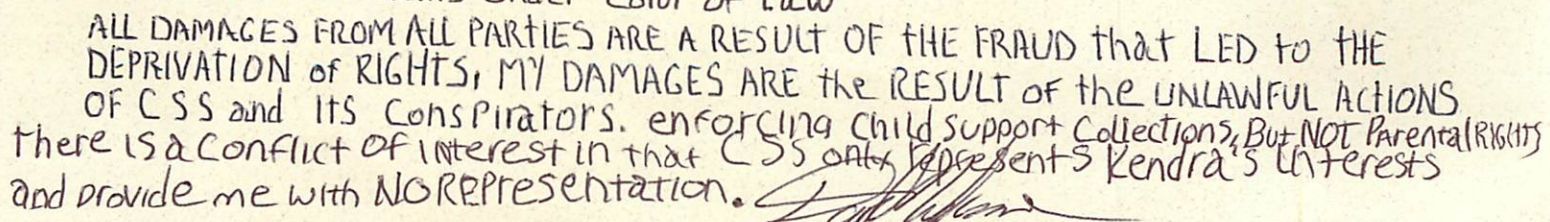 Color OF LAW
ALL DAMAGES FROM ALL PARTIES ARE A RESULT OF tHE FRAUD that LED to tHE
DEPRIVATION of RIGHTS, MY DAMAGES ARE the RESULT of the UNLAWFUL ACTIONS
OF CSS and ITS Conspirators. enforcing Child Support Collections, But NOT Parental RIGHTS
there IS a Conflict OF interest in that CSS only represents Kendra's interests
and provide me with NO REPresentation.